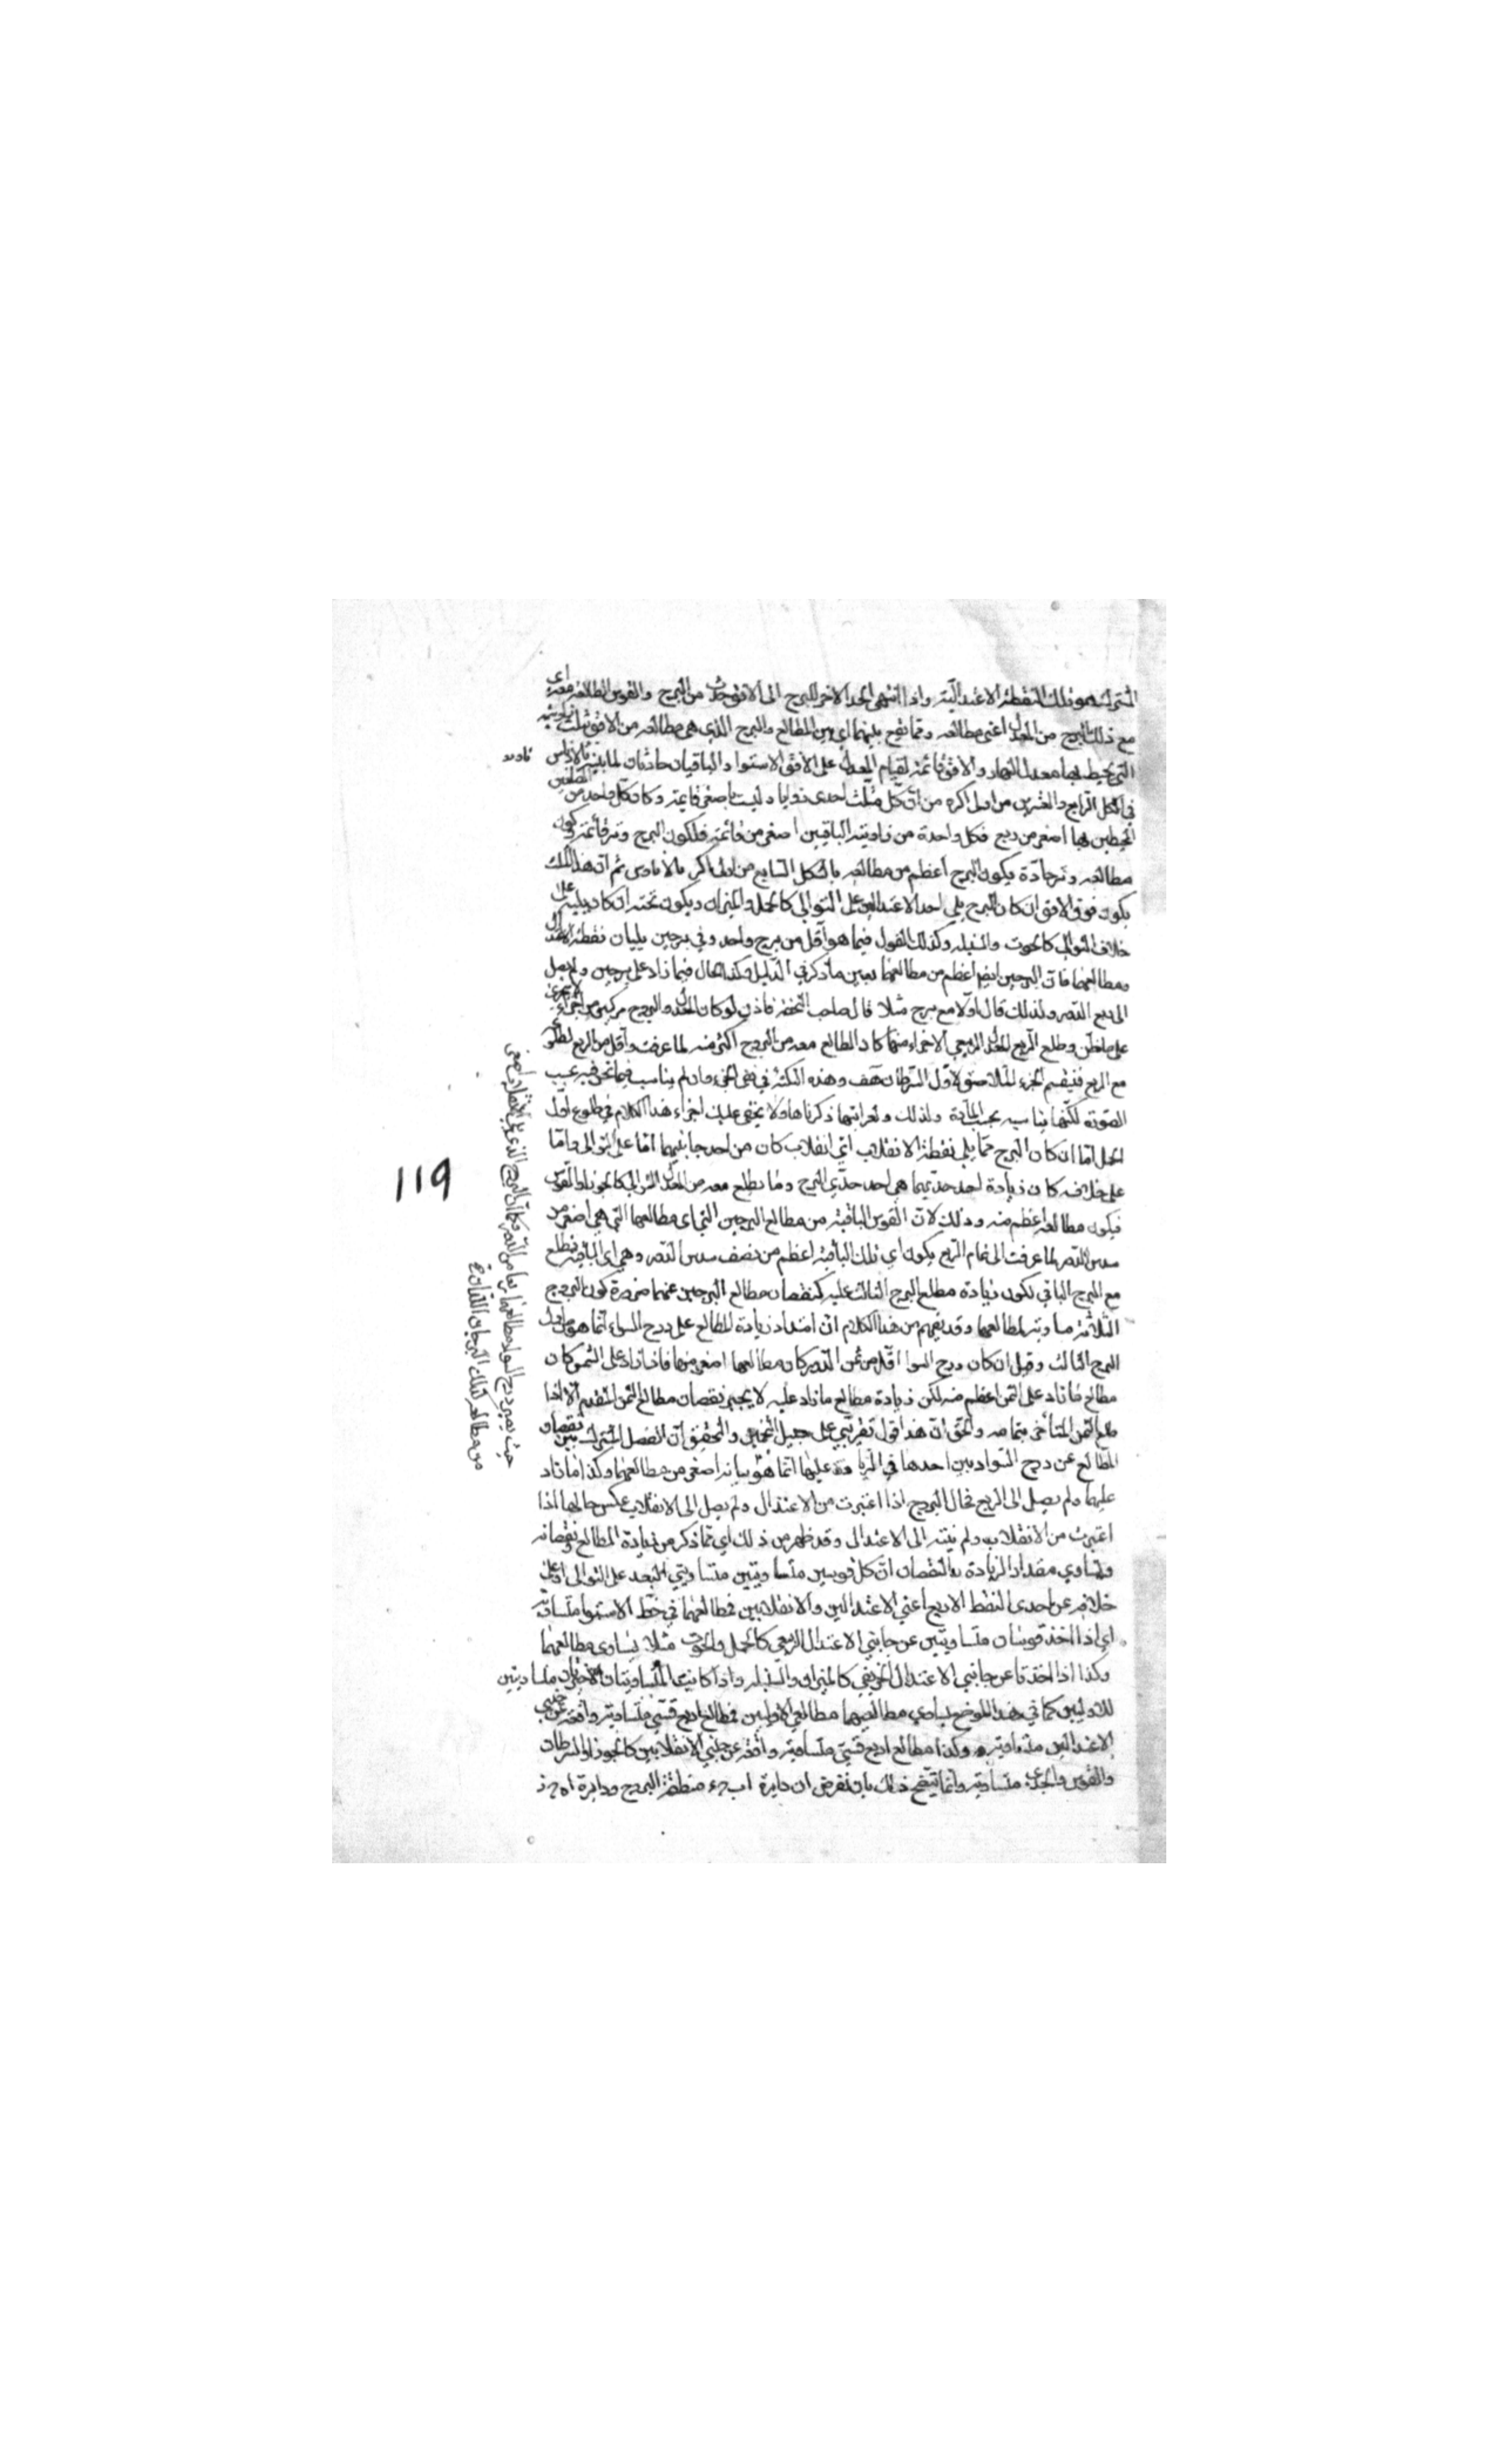 المشترك هو تلك النقطة الاعتدالية واذا انتهى الحد الاخر للبرج الى الافق حدث من البرج والقوس الطالعة معه اى
مع ذلك البرج من المعدل اعنى مطالعه ومما تقع بينهما اي بين المطالع والبرج الذي هى مطالعه من الافق مثلث زاويته
التي يحيط بها معدل النهار والافق قائمة لقيام المعدل على الافق الاستوا والباقيان حادتان لما بينه مالاناوس
في الشكل الرابع والعشرين من اكره من ان كل مثلث احدى زوايا وليست باصغر قايمة وكان كل واحد من الضلعين
المحيطين بها اصغر من ربع فكل واحدة من زاويتيه الباقيتين اصغر من قائمة فلكون البرج وتر قائمة وكون
مطالعه وتر حادّة يكون البرج اعظم من مطالعه بالشكل السابع من اكر مالاناوس ثم ان هذا المثلث
يكون فوق الافق ان كان البرج يلي احد الاعتدالين على التوالي كالحمل والميزان ويكون تحته ان كان يليه على
خلاف التوالي كالحوت والسنبلة وكذلك القول فيما هو اقل من برج واحد وفي برجين يليان نقطة الاعتدال
ومطالعهما فان البرجين ايضا اعظم من مطالعهما بعين ما ذكر في الدليل وكذا الحال فيما زاد على برجين ولم يصل
الى ربع الدور ولذلك قال اولا مع برج مثلا قال صاحب التحفة فاذن لو كان المعدل والبروج مركبين من اجزاء لا تتجزى
على ما ظن وطلع الربع المعدل الربيعي الاجزاء منهما كان الطالع معه من البروج اكثر منه لما عرفت واقل من الربع لطلوعه
مع الربع فينقسم الجزء الملاصق لاول السرطان هف وهذه النكتة في نفي الجزء وان لم يناسب فيما نحن فيه بحسب
الصورة لكنها يناسبه بحسب المادة ولذلك ولغرابتها ذكرناها ولا يخفى عليك اجراء هذا الكلام في طلوع اول
الحمل اما ان كان البرج مما يلي نقطة الانقلاب اي انقلاب كان من احد جانبيها اما على التوالى واما
على خلافه كان زيادة احد حديهما هي احد حدّي البرج وما يطلع معه من المعدل التوالي كالجوزا والقوس
فيكون مطالعه اعظم منه وذلك لان القوس الباقية من مطالع البرجين التي اى مطالعهما التي هي اصغر من
سدس الدور لما عرفت الى تمام الربع يكون اي تلك الباقية اعظم من نصف سدس الدور وهي اى الباقية تطلع
مع البرج الباقي لكون زيادة مطلع البرج الثالث عليه كنقصان مطالع البرجين عنهما ضرورة كون البروج
الثلاثة مساوية لمطالعها وقد يفهم من هذا الكلام ان امتداد زيادة المطالع على درج السواء انما هو من اول
البرج الثالث وقيل ان كان درج السوا اقل من ثمن الدور كان مطالعها اصغر منها فاذا زاد على الثمن كان
مطالع ما زاد على الثمن اعظم منه لكن زيادة مطالع ما زاد عليه لا يجبر نقصان مطالع الثمن المتقدم الا اذا
طلع الثمن المتأخر بتمامه والحق ان هذا قول تقريبي على سبيل التخمين والتحقيق ان الفصل المشترك بين نقصان
المطالع عن درج السواء وبين احدها في الزيادة عليها انما هو بيانه اصغر من مطالعهما وكذا ما زاد
عليها ولم يصل الى الربع فحال البروج اذا اعتبرت من الاعتدال ولم يصل الى الانقلاب عكس حالها اذا
اعتبرت من الانقلاب ولم ينته الى الاعتدال وقد ظهر من ذلك اي مما ذكر من زيادة المطالع ونقصانه
وتساوي مقدار الزيادة والنقصان ان كل قوسين متساويتين متساويتي البعد على التوالى او على
خلافه عن احدى النقط الاربع اعني الاعتدالين والانقلابين فمطالعهما في خط الاستوا متساوية
اي اذا اخذ قوسان متساويتين عن جانبي الاعتدال الربيعى كالحمل والحوت مثلا يتساوى مطالعهما
وكذا اذا اخذتا عن جانبي الاعتدال الخريفي كالميزان والسنبلة واذا كانت المتساويتان الاخريان متساويتين
للاوليين كما في هذا الموضع يساوي مطالعهما مطالعي الاوليين فمطالع اربع قسي متساوية واقعة عن جنبي
الاعتدالين متساوية وكذا مطالع اربع قسي متساوية واقعة عن جنبي الانقلابين كالجوزا والسرطان
والقوس والجدى متساوية وانما يتضح ذلك بان نفرض ان دايرة اب ج ء منطقة البروج ودايرة ا ه ج ز
حيث يصير درج السواء مطالعهما ربعا من الدور فكما ان البرج الذي يلي الانقلاب اصغر
من مطالعه كذلك البرجان اللذان
119